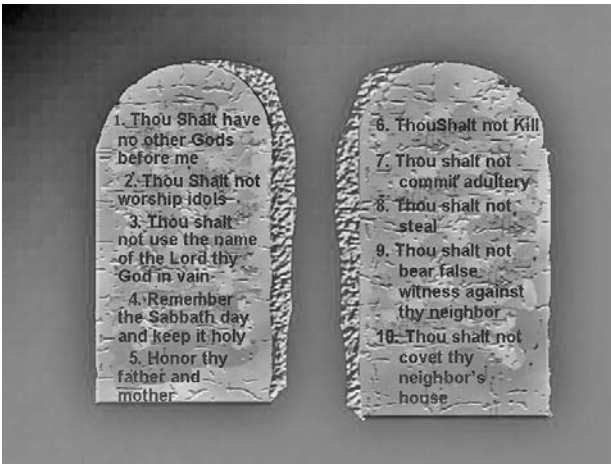 1. Thou Shalt have
no other Gods
before me
2. Thou Shalt not
worship idols
3. Thou shalt
not use the name
of the Lord thy
God in vain
4. Remember
the Sabbath day
and keep it holy
5. Honor thy
father and
mother
6. ThouShalt not Kill
7. Thou shalt not
commit adultery
8. Thou shalt not
steal
9. Thou shalt not
bear false
witness against
thy neighbor
10. Thou shalt not
covet thy
neighbor's
house